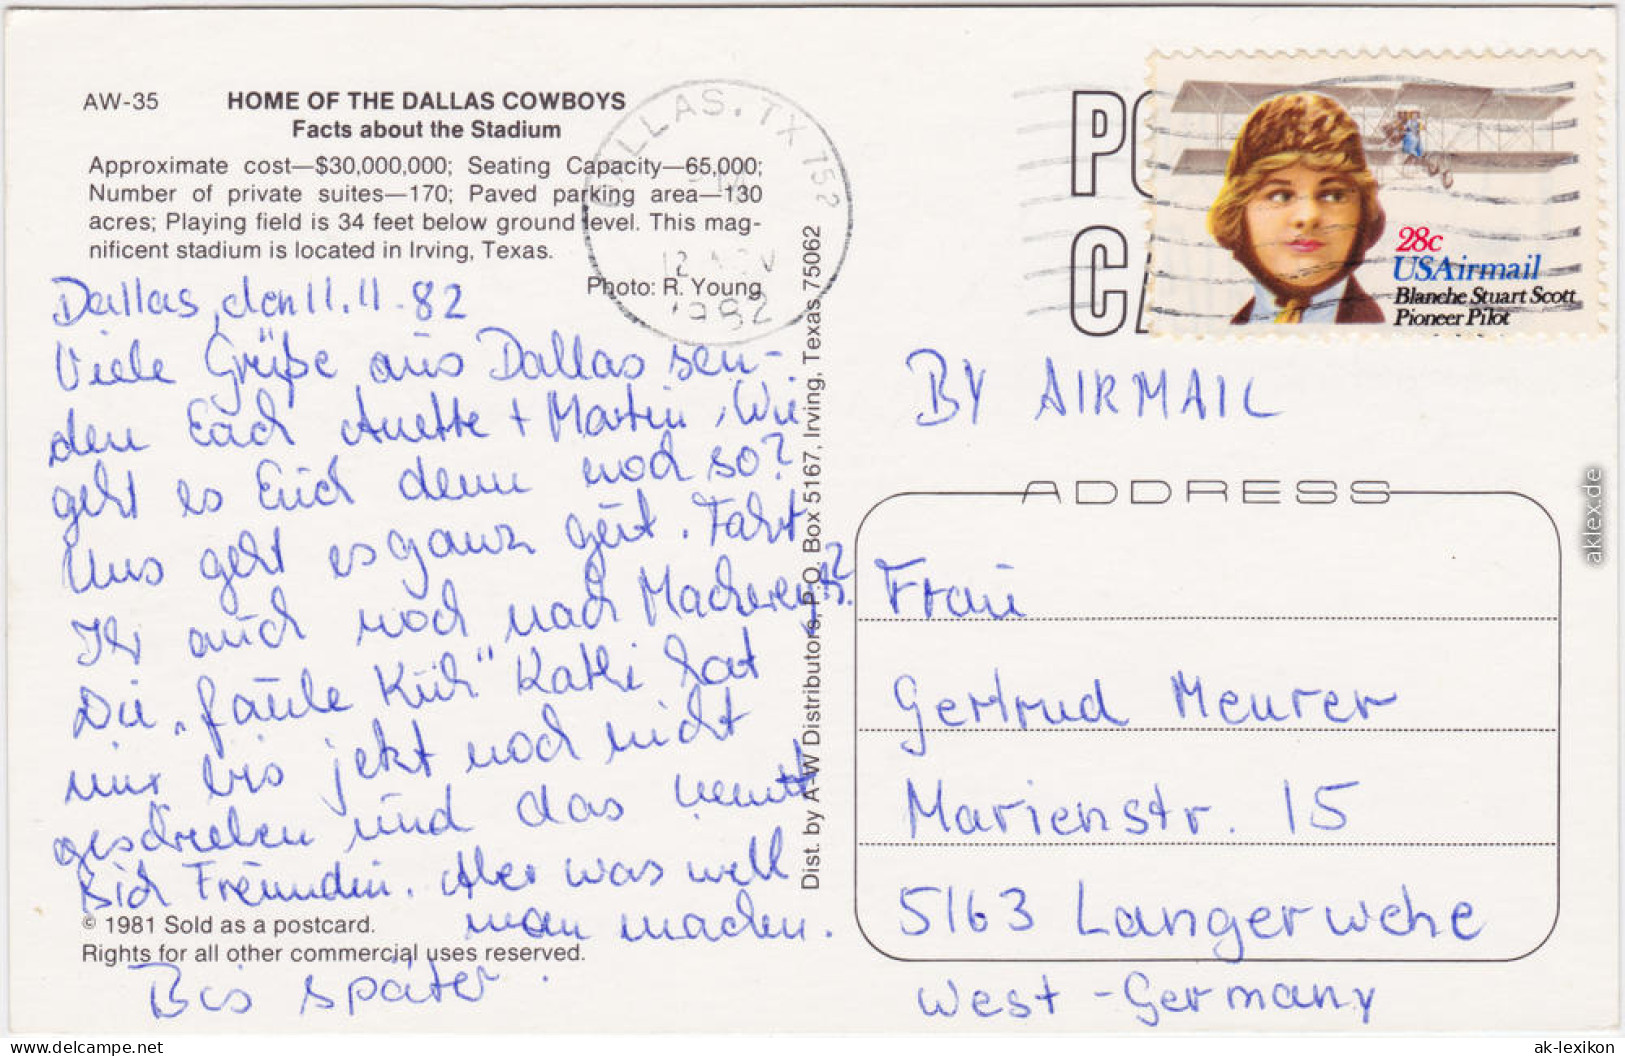 AW-35 HOME OF THE DALLAS COWBOYS
Facts about the Stadium
Approximate cost—$30,000,000; Seating Capacity—65,000;
Number of private suites—170; Paved parking area—130
acres; Playing field is 34 feet below ground level. This mag-
nificent stadium is located in Irving, Texas.
Photo: R. Young
Dallas, den 11.11.82
Viele Grüße aus Dallas sen-
den Euch Anette + Martin. Wie
geht es Euch denn noch so?
Uns geht es ganz gut. Fahrt
Ihr auch noch nach
Die „faule Kuh" Kathi hat
mir bis jetzt noch nicht
geschrieben und das nennt
sich Freundin. Aber was will
man machen.
Bis später.
© 1981 Sold as a postcard.
Rights for all other commercial uses reserved.
Dist. by A-W Distributors, P.O. Box 5167, Irving, Texas 75062
DALLAS, TX 752
12 NOV
1982
28c
USAirmail
Blanche Stuart Scott
Pioneer Pilot
BY AIRMAIL
ADDRESS
Frau
Gertrud Meurer
Marienstr. 15
5163 Langerwehe
West-Germany
aklex.de
www.delcampe.net
ak-lexikon